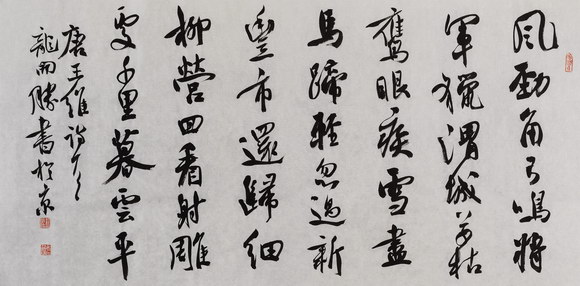 風勁角弓鳴將
軍獵渭城草枯
鷹眼疾雪盡
馬蹄輕忽過新
豐市還歸細
柳營回看射雕
處千里暮雲平
唐王維詩
龍勝書於京